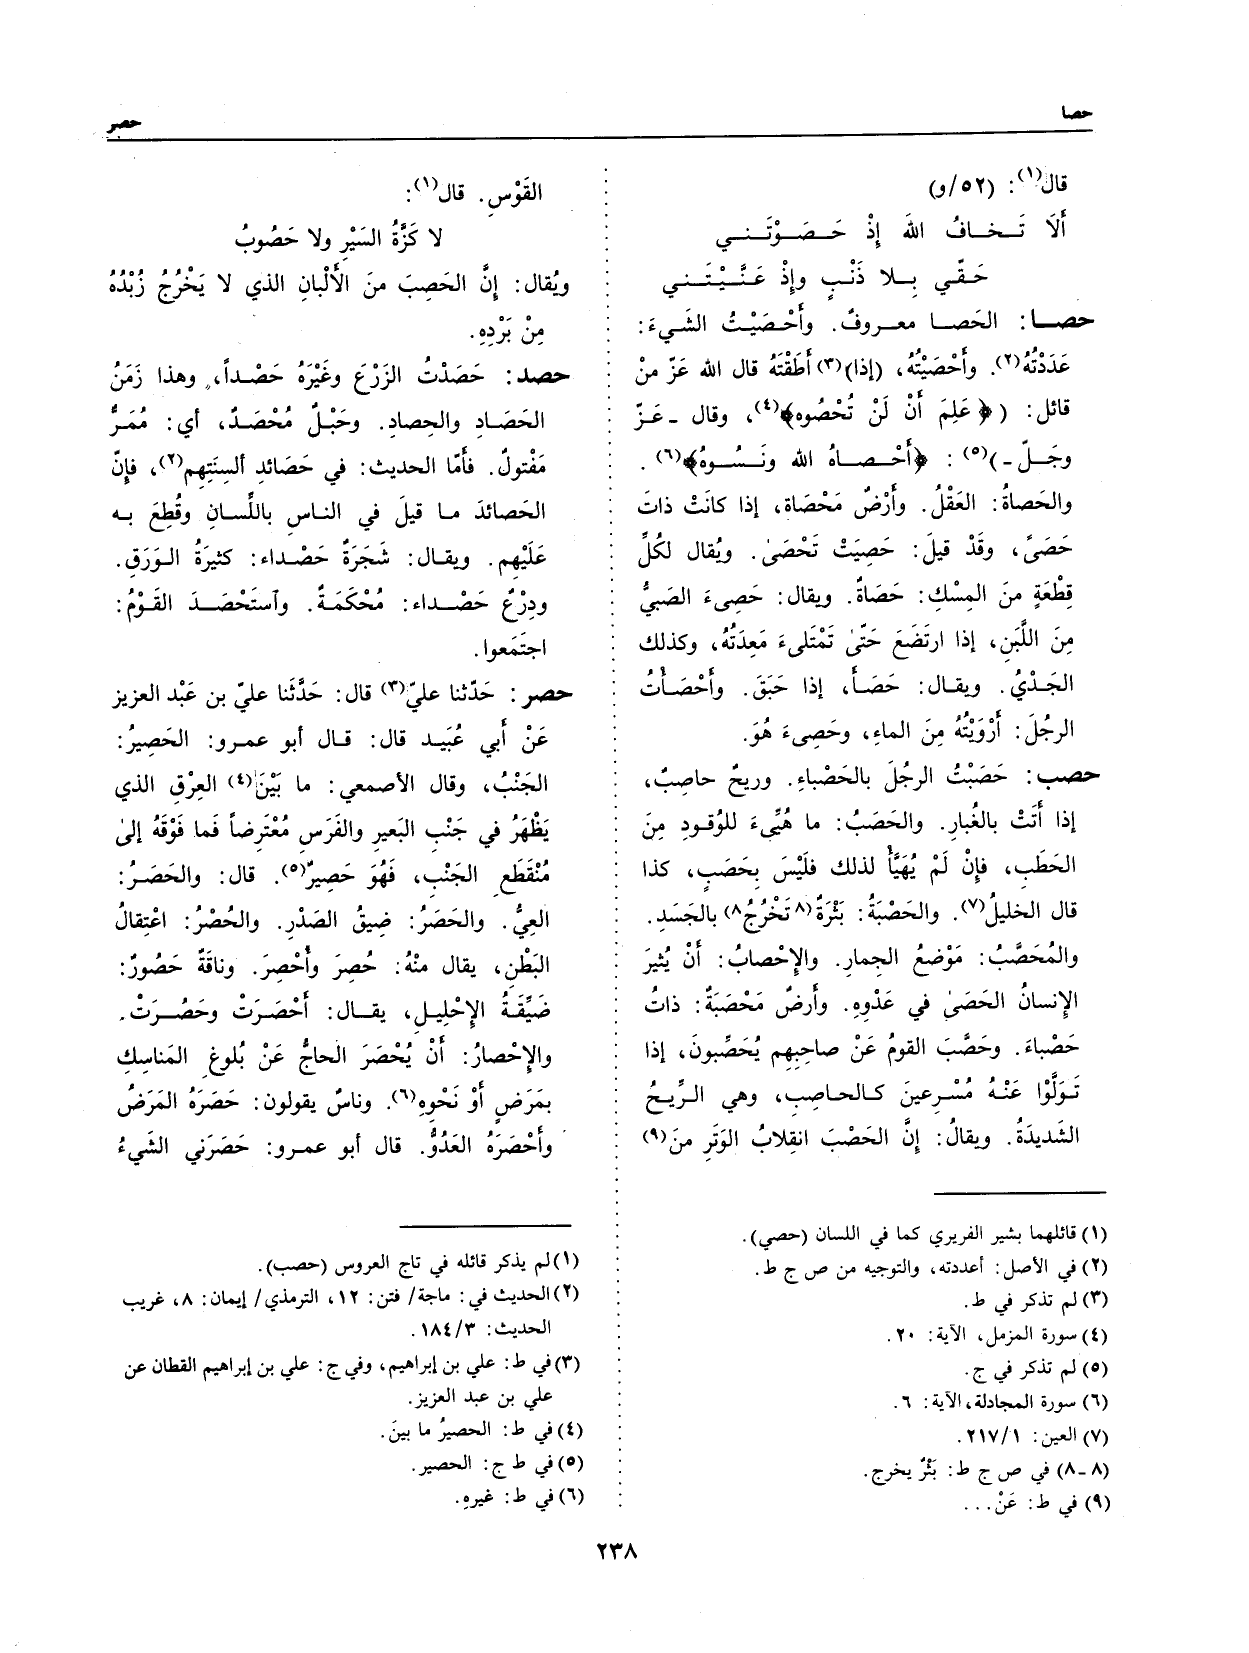 حصا
حصر
قال(١): (٥٢/و)
أَلَا تَـخـافُ اللهَ إِذْ حَـصَـوْتَـنـي
حَـقّي بِـلا ذَنْبٍ وإذْ عَـنَّـيْـتَـنـي
حصـا: الحَصـا معـروفٌ. وأَحْـصَيْـتُ الشَّـيءَ:
عَدَدْتُهُ(٢). وأَحْصَيْتُهُ، (إذا)(٣) أَطَقْتَهُ قال الله عَزّ منْ
قائل: ﴿عَلِمَ أَنْ لَنْ تُحْصُوه﴾(٤)، وقال ـ عَـزّ
وجَـلّ ـ)(٥): ﴿أَحْـصـاهُ الله ونَـسُـوهُ﴾(٦).
والحَصاةُ: العَقْلُ. وأَرْضٌ مَحْصَاة، إذا كانَتْ ذاتَ
حَصَىً، وقَدْ قيلَ: حَصِيَتْ تَحْصَىٰ. ويُقال لكُلِّ
قِطْعَةٍ منَ المِسْكِ: حَصَاةٌ. ويقال: حَصِىءَ الصَبيُّ
مِنَ اللَّبَنِ، إذا ارتَضَعَ حَتّىٰ تَمْتَلىءَ مَعِدَتُهُ، وكذلك
الجَـدْيُ. ويقـال: حَصَـأَ، إذا حَبَقَ. وأَحْصَـأْتُ
الرجُلَ: أَرْوَيْتُهُ مِنَ الماءِ، وحَصِىءَ هُوَ.
حصب: حَصَبْتُ الرجُلَ بالحَصْباءِ. وريحٌ حاصِبٌ،
إذا أَتَتْ بالغُبارِ. والحَصَبُ: ما هُيِّىءَ للوُقـودِ مِنَ
الحَطَبِ، فإنْ لَمْ يُهَيَّأْ لذلك فلَيْسَ بِحَصَبٍ، كذا
قال الخليلُ(٧). والحَصْبَةُ: بَثْرَةٌ(٨ تَخْرُجُ٨) بالجَسَدِ.
والمُحَصَّبُ: مَوْضعُ الجِمارِ. والإحْصابُ: أَنْ يُثيرَ
الإنسانُ الحَصَىٰ في عَدْوِهِ. وأرضٌ مَحْصَبَةٌ: ذاتُ
حَصْباءَ. وحَصَّبَ القومُ عَنْ صاحِبِهِم يُحَصِّبونَ، إذا
تَـوَلَّوْا عَنْـهُ مُسْـرِعينَ كـالحـاصِبِ، وهي الـرِّيـحُ
الشَديدَةُ. ويقالُ: إنَّ الحَصْبَ انقِلابُ الوَتَرِ منَ(٩)
(١) قائلهما بشير الفريري كما في اللسان (حصي).
(٢) في الأصل: أعددته، والتوجيه من ص ج ط.
(٣) لم تذكر في ط.
(٤) سورة المزمل، الآية: ٢٠.
(٥) لم تذكر في ج.
(٦) سورة المجادلة، الآية: ٦.
(٧) العين: ٢١٧/١.
(٨ـ٨) في ص ج ط: بَثْرٌ يخرج.
(٩) في ط: عَنْ...
القَوْسِ. قال(١):
لا كَزَّةُ السَيْرِ ولا حَصُوبُ
ويُقال: إنَّ الحَصِبَ منَ الأَلْبانِ الذي لا يَخْرُجُ زُبْدُهُ
مِنْ بَرْدِهِ.
حصد: حَصَدْتُ الزَرْعَ وغَيْرَهُ حَصْـداً، وهذا زَمَنُ
الحَصَـادِ والحِصادِ. وحَبْـلٌ مُحْصَـدٌ، أي: مُمَـرٌّ
مَفْتولٌ. فأمّا الحديث: في حَصَائدِ ألسِنَتِهم(٢)، فإنّ
الحَصائدَ مـا قيلَ في النـاس باللَّسـانِ وقُطِعَ بـه
عَلَيْهِم. ويقـال: شَجَرَةٌ حَصْـداء: كثيرَةُ الـوَرَقِ.
ودِرْعٌ حَصْـداء: مُحْكَمَـةٌ. وٱستَحْصَـدَ القَـوْمُ:
اجتَمَعوا.
حصر: حَدّثنا عليّ(٣) قال: حَدَّثَنا عليّ بن عَبْد العزيز
عَنْ أبي عُبَيـد قال: قـال أبو عمـرو: الحَصِيرُ:
الجَنْبُ، وقال الأصمعي: ما بَيْنَ(٤) العِرْقِ الذي
يَظْهَرُ في جَنْبِ البَعيرِ والفَرَسِ مُعْتَرِضاً فَما فَوْقَهُ إلىٰ
مُنْقَطَعِ الجَنْبِ، فَهُوَ حَصِيرٌ(٥). قال: والحَصَـرُ:
العِيُّ. والحَصَرُ: ضِيقُ الصَدْرِ. والحُصْرُ: اعْتِقالُ
البَطْنِ، يقال منْهُ: حُصِرَ وأُحْصِرَ. وناقَةٌ حَصُورٌ:
ضَيِّقَـةُ الإحْليـلِ، يقـال: أَحْصَـرَتْ وحَصُـرَتْ.
والإحْصارُ: أَنْ يُحْصَرَ الحاجُّ عَنْ بُلوغِ المَناسِكِ
بمَرَضٍ أَوْ نَحْوِهِ(٦). وناسٌ يقولون: حَصَرَهُ المَرَضُ
وأَحْصَرَهُ العَدُوُّ. قال أبو عمـرو: حَصَرَني الشَيءُ
(١) لم يذكر قائله في تاج العروس (حصب).
(٢) الحديث في: ماجة/ فتن: ١٢، الترمذي/ إيمان: ٨، غريب
الحديث: ١٨٤/٣.
(٣) في ط: علي بن إبراهيم، وفي ج: علي بن إبراهيم القطان عن
علي بن عبد العزيز.
(٤) في ط: الحصيرُ ما بينَ.
(٥) في ط ج: الحصير.
(٦) في ط: غيرهِ.
٢٣٨